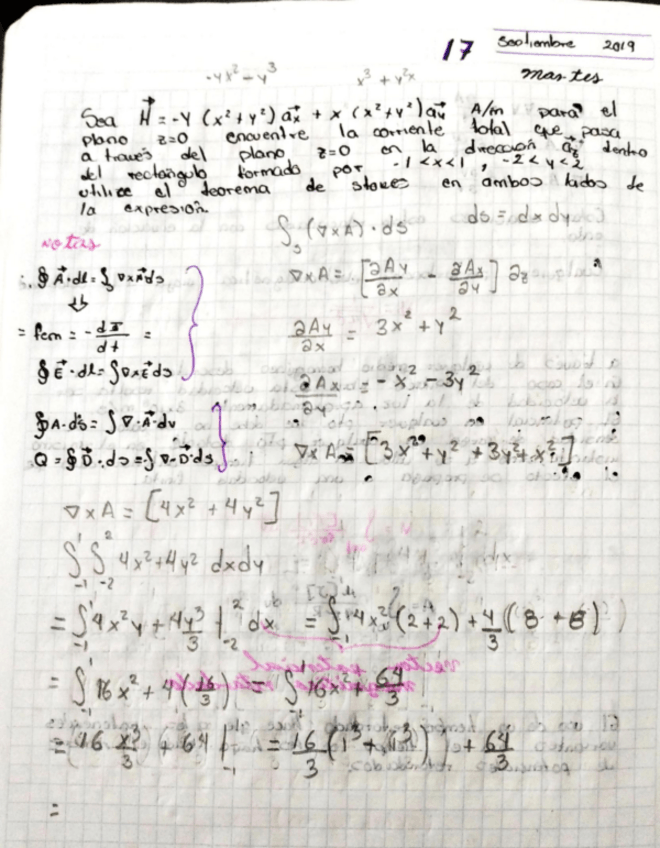 17 Septiembre 2019
martes
-yx² - y³ x³ + y²x
Sea H⃗ = -y (x²+y²) a⃗x + x (x²+y²) a⃗y A/m para el
plano z=0 encuentre la corriente total que pasa
a través del plano z=0 en la dirección a⃗z dentro
del rectángulo formado por -1<x<1, -2<y<2
utilice el teorema de stokes en ambos lados de
la expresión.
∫s (∇xA)·ds ds = dxdy
notas
∴ ∮A⃗·dl = ∫s ∇xA⃗ds
∇xA = [∂Ay/∂x - ∂Ax/∂y] az
= fem = -dΦ/dt =
∂Ay/∂x = 3x² + y²
∮E⃗·dl = ∫∇xE⃗ds
∂Ax/∂y = -x² - 3y²
∮A·ds = ∫∇·A⃗·dv
Q = ∮D⃗·ds = ∫∇·D⃗·ds
∇xA = [3x² + y² + 3y² + x²]
∇xA = [4x² + 4y²]
∫₋₁¹ ∫₋₂² 4x²+4y² dxdy
= ∫₋₁¹ 4x²y + 4y³/3 |₋₂² dx = ∫₋₁¹ 4x² (2+2) + 4/3 (8+8)
= ∫₋₁¹ 16x² + 4(16/3) = ∫₋₁¹ 16x² + 64/3
= 16 x³/3 + 64 |₋₁ = 16/3 (1³ + 1³) + 64/3
=